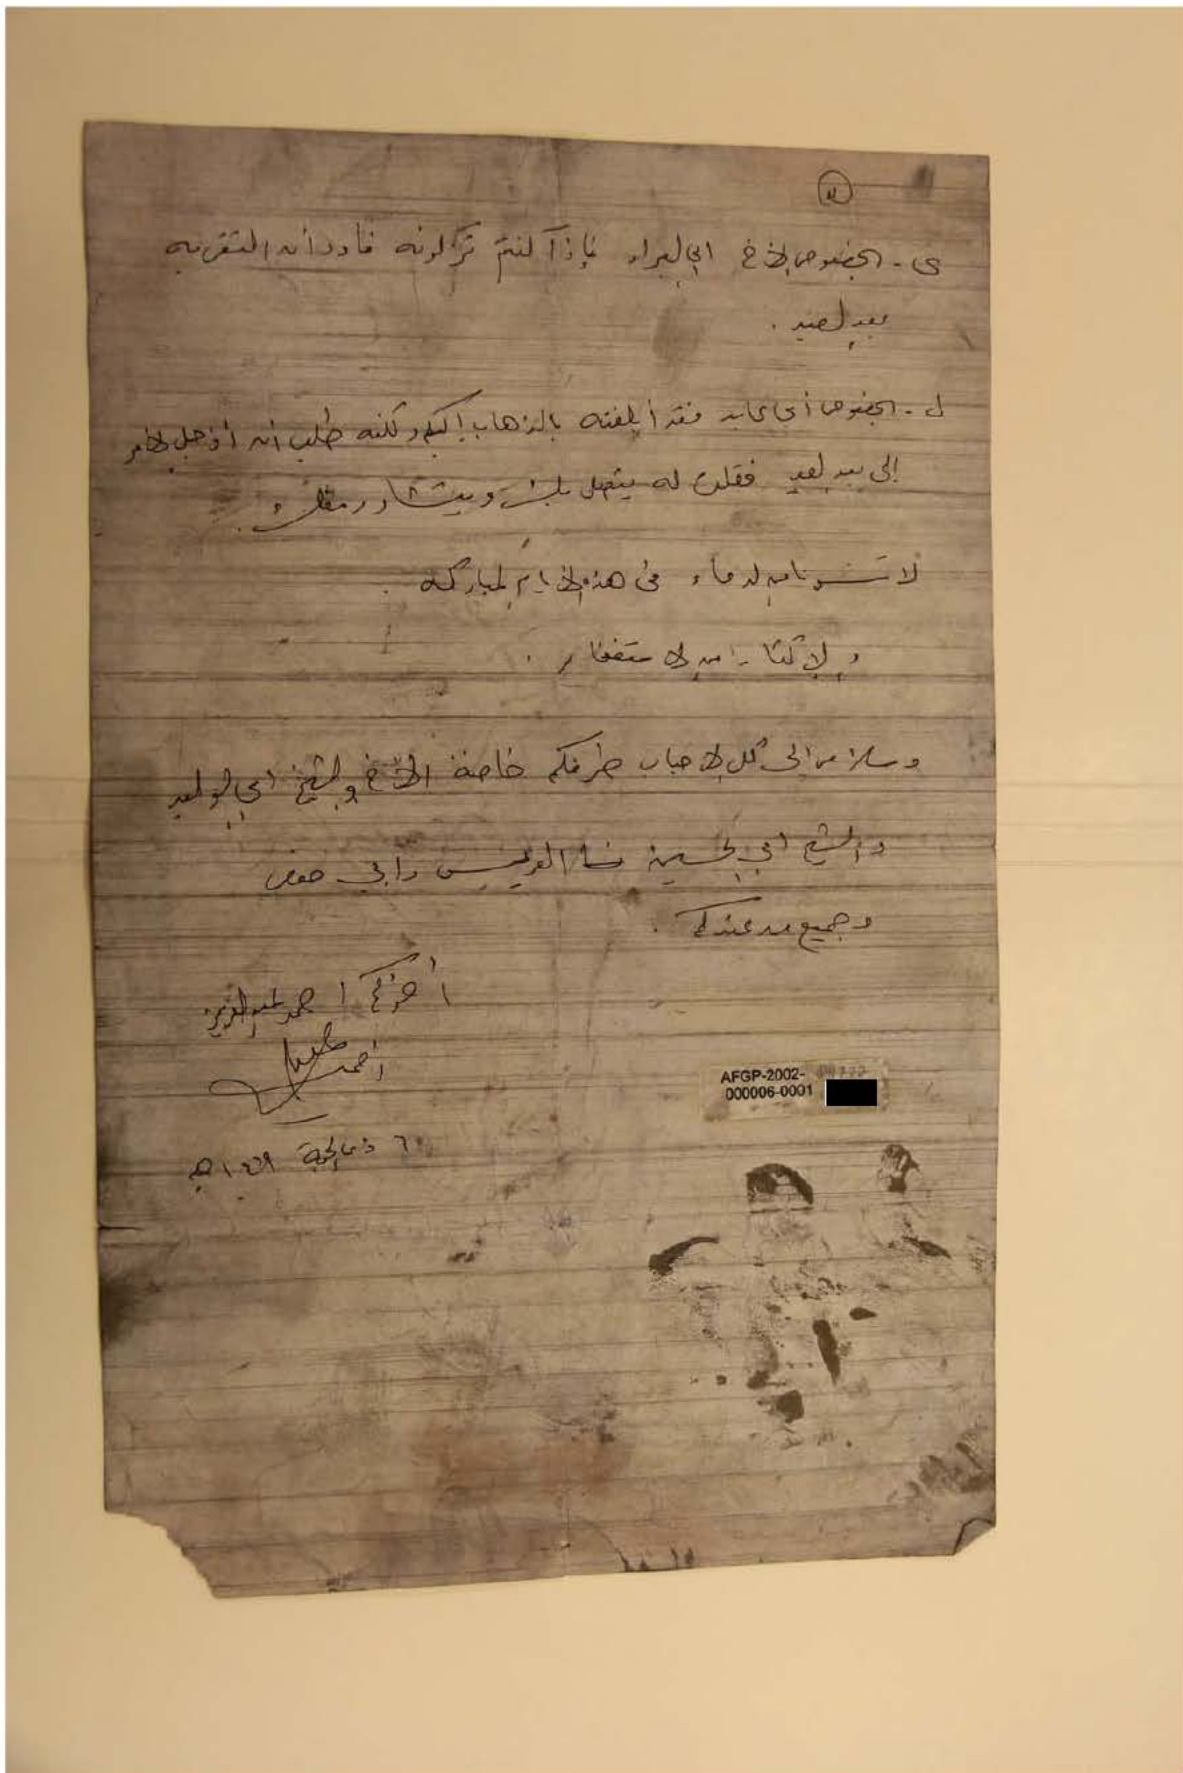 ى - بخصوص الأخ أبي البراء فإذا كنتم تزكونه فأود أن التقي به
بعد العيد .
ل - بخصوص أبي عابد فقد أبلغته بالذهاب إليكم ولكنه طلب أن أؤجل الأمر
إلى بعد العيد فقلت له يتصل بك ويتشاور معك .
لا تنسونا من الدعاء في هذه الأيام المباركة .
والإكثار من الاستغفار .
وسلامي إلى كل الأحباب طرفكم خاصة الأخ والشيخ أبي الوليد
والشيخ أبي الحسين وأبي حفص
وجميع من عندكم .
أخوكم أحمد عبد العزيز
أحمد
ذي الحجة
AFGP-2002-
000006-0001